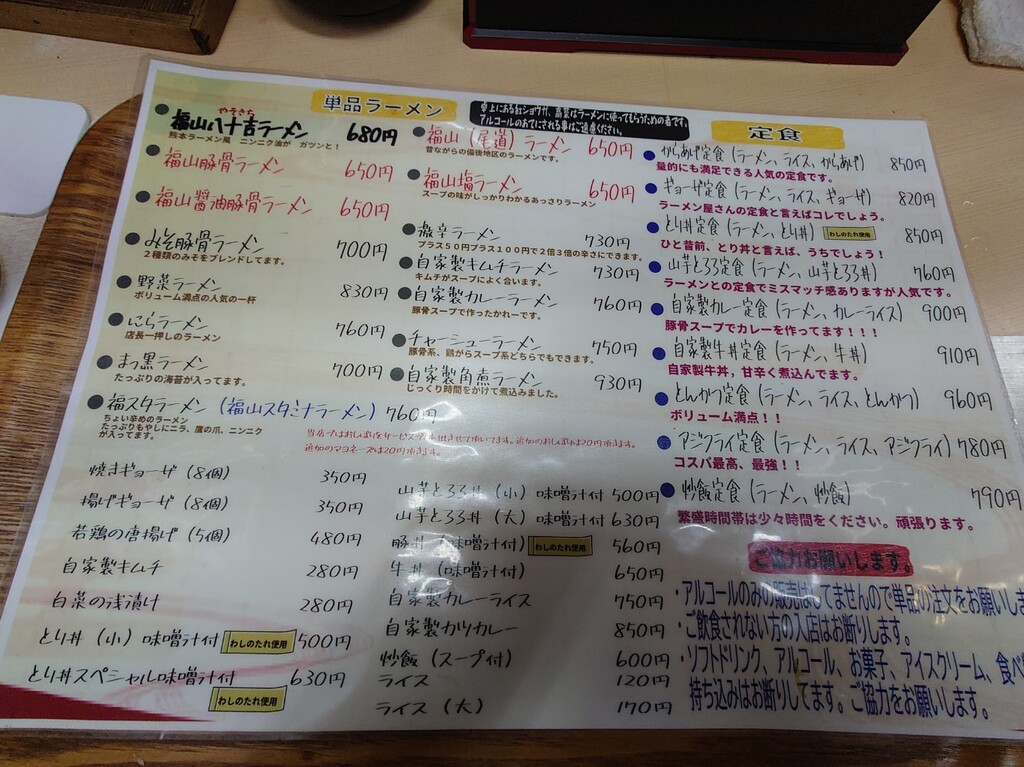 単品ラーメン
やそきち
福山八十吉ラーメン 680円
熊本ラーメン風 ニンニク油が ガツンと！
福山豚骨ラーメン 650円
福山醤油豚骨ラーメン 650円
みそ豚骨ラーメン 700円
２種類のみそをブレンドしてます。
野菜ラーメン 830円
ボリューム満点の人気の一杯
にらラーメン 760円
店長一押しのラーメン
まっ黒ラーメン 700円
たっぷりの海苔が入ってます。
福スタラーメン（福山スタミナラーメン）760円
ちょい辛めのラーメン
たっぷりもやしにニラ、鷹の爪、ニンニク
が入ってます。
卓上にある紅ショウガ、高菜はラーメンに使ってもらうための者です。
アルコールのあてにされる事はご遠慮ください。
福山（尾道）ラーメン 650円
昔ながらの備後地区のラーメンです。
福山塩ラーメン 650円
スープの味がしっかりわかるあっさりラーメン
激辛ラーメン 730円
プラス５０円プラス１００円で２倍３倍の辛さにできます。
自家製キムチラーメン 730円
キムチがスープによく合います。
自家製カレーラーメン 760円
豚骨スープで作ったかれーです。
チャーシューラーメン 750円
豚骨系、鶏がらスープ系どちらでもできます。
自家製角煮ラーメン 930円
じっくり時間をかけて煮込みました。
追加のマヨネーズは20円頂きます。
焼きギョーザ（8個） 350円
揚げギョーザ（8個） 350円
若鶏の唐揚げ（5個） 480円
自家製キムチ 280円
白菜の浅漬け 280円
とり丼（小）味噌汁付 わしのたれ使用 500円
とり丼スペシャル味噌汁付 630円
わしのたれ使用
山芋とろろ丼（小）味噌汁付 500円
山芋とろろ丼（大）味噌汁付 630円
豚丼（味噌汁付） わしのたれ使用 560円
牛丼（味噌汁付） 650円
自家製カレーライス 750円
自家製カツカレー 850円
炒飯（スープ付） 600円
ライス 120円
ライス（大） 170円
定食
からあげ定食（ラーメン、ライス、からあげ） 850円
量的にも満足できる人気の定食です。
ギョーザ定食（ラーメン、ライス、ギョーザ） 820円
ラーメン屋さんの定食と言えばコレでしょう。
とり丼定食（ラーメン、とり丼） わしのたれ使用 850円
ひと昔前、とり丼と言えば、うちでしょう！
山芋とろろ定食（ラーメン、山芋とろろ丼） 760円
ラーメンとの定食でミスマッチ感ありますが人気です。
自家製カレー定食（ラーメン、カレーライス） 900円
豚骨スープでカレーを作ってます！！！
自家製牛丼定食（ラーメン、牛丼） 910円
自家製牛丼，甘辛く煮込んでます。
とんかつ定食（ラーメン、ライス、とんかつ） 960円
ボリューム満点！！
アジフライ定食（ラーメン、ライス、アジフライ）780円
コスパ最高、最強！！
炒飯定食（ラーメン、炒飯） 790円
繁盛時間帯は少々時間をください。頑張ります。
ご協力お願いします。
・アルコールのみの販売はしてませんので単品の注文をお願いしま
・ご飲食されない方の入店はお断りします。
・ソフトドリンク、アルコール、お菓子、アイスクリーム、食べ
持ち込みはお断りしてます。ご協力をお願いします。